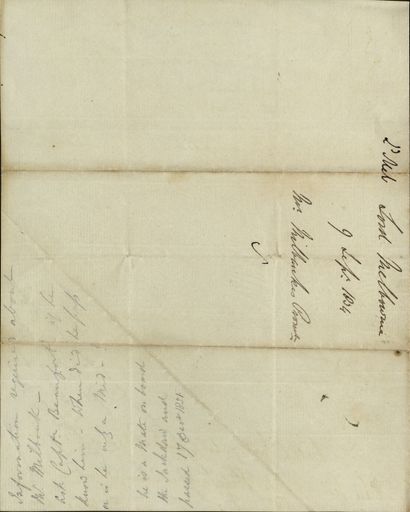 Lord Melbourne
9 Sepr. 1834
Mr. Milbankes
Information required about
Mr. Milbank —
Ask Captn Beaufort if he
knows him — When did he pass
or is he only a Mid —
he is a Mate on board
the
passed 17 Decr 1831